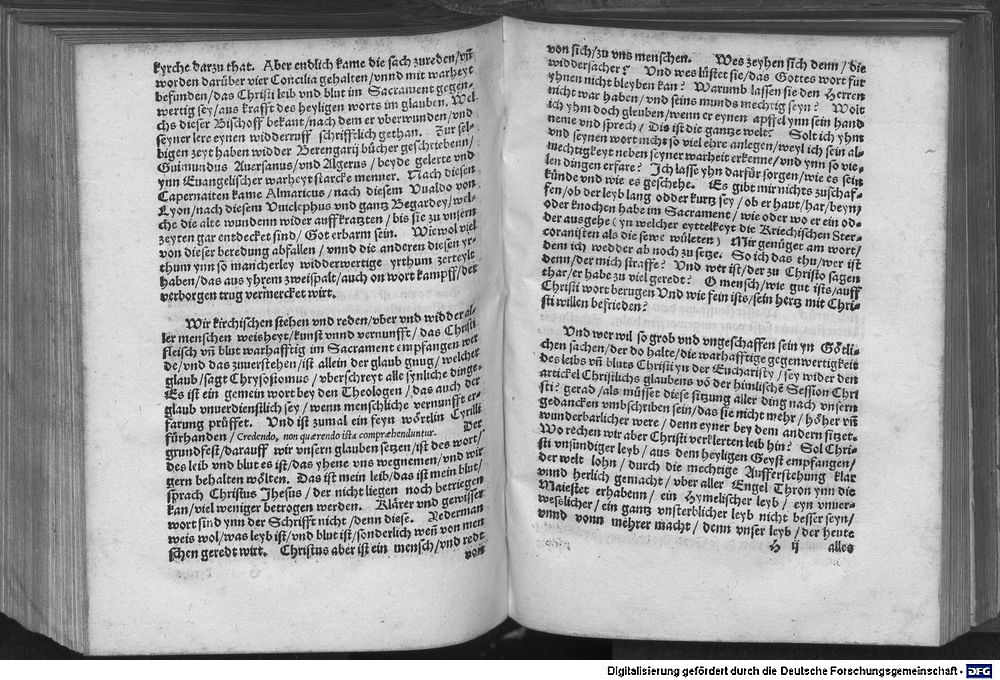 kyrche darzu that. Aber endlich kame die sach zureden/vñ
worden darüber vier Concilia gehalten/vnnd mit warheyt
befunden/das Christi leib vnd blut im Sacrament gegen-
wertig sey/aus krafft des heyligen worts im glauben. Wel
chs dieser Bischoff bekant/nach dem er vberwunden/vnd
seyner lere eynen widderruff schrifftlich gethan. Zur sel-
bigen zeyt haben widder Berengarij bücher geschriebenn/
Guimundus Auersanus/vnd Algerus/beyde gelerte vnd
ynn Euangelischer warheyt starcke menner. Nach diesen
Capernaiten kame Almaricus/nach diesem Vualdo von
Lyon/nach diesem Vuiclephus vnd gantz Begardey/wel-
che die alte wundenn wider auffkratzten/bis sie zu vnsern
zeyten gar entdecket sind/Got erbarm sein. Wiewol viel
von dieser beredung abfallen/vnnd die anderen diesen yr-
thum ynn so mancherley widderwertige yrthum zerteylt
haben/das aus yhrem zweispalt/auch on wort kampff/der
verborgen trug vermercket wirt.
Wir kirchischen stehen vnd reden/vber vnd widder al-
ler menschen weisheyt/kunst vnnd vernunfft/das Christi
fleisch vñ blut warhafftig im Sacrament empfangen wer
de/vnd das zuuerstehen/ist allein der glaub gnug/welcher
glaub/sagt Chrysostomus/vberschreyt alle synliche dinge.
Es ist ein gemein wort bey den Theologen/das auch der
glaub vnuerdienstlich sey/wenn menschliche vernunfft er-
farung prüffet. Vnd ist zumal ein feyn wörtlin Cyrilli
fürhanden/Credendo, non quærendo ista compræhenduntur. Der
grundfest/darauff wir vnsern glauben setzen/ist des wort/
des leib vnd blut es ist/das yhene vns wegnemen/vnd wir
gern behalten wölten. Das ist mein leib/das ist mein blut/
sprach Christus Jhesus/der nicht liegen noch betriegen
kan/viel weniger betrogen werden. Klärer vnd gewisser
wort sind ynn der Schrifft nicht/denn diese. Yederman
weis wol/was leyb ist/vnd blut ist/sonderlich weñ von men
schen geredt wirt. Christus aber ist ein mensch/vnd redt
von
von sich/zu vns menschen. Wes zeyhen sich denn/die
widdersacher? Vnd wes lüstet sie/das Gottes wort für
yhnen nicht bleyben kan? Warumb lassen sie den Herren
nicht war haben/vnd seins munds mechtig seyn? Wolt
ich yhm doch gleuben/wenn er eynen apffel ynn sein hand
neme vnd sprech/Dis ist die gantze welt? Solt ich yhm
vnd seynen wort nicht so viel ehre anlegen/weyl ich sein al-
mechtigkeyt neben seyner warheit erkenne/vnd ynn so vie-
len dingen erfare? Ich lasse yhn darfür sorgen/wie es sein
künde vnd wie es geschehe. Es gibt mir nichts zuschaf-
fen/ob der leyb lang odder kurtz sey/ob er haut/har/beyn/
oder knochen habe im Sacrament/wie oder wo er ein od-
der ausgehe (yn welcher eyttelkeyt die Kriechischen Ster-
coranisten als die sewe wületen) Mir genüget am wort/
dem ich wedder ab noch zu setze. So ich das thu/wer ist
denn/der mich straffe? Vnd wer ist/der zu Christo sagen
thar/er habe zu viel geredt? O mensch/wie gut ists/auff
Christi wort berugen Vnd wie fein ists/sein hertz mit Chri-
sti willen befrieden?
Vnd wer wil so grob vnd vngeschaffen sein yn Götli-
chen sachen/der do halte/die warhafftige gegenwertigkeit
des leibs vñ bluts Christi yn der Eucharisty/sey wider den
artickel Christlichs glaubens võ der himlischẽ Session Chri
sti? gerad/als müsset diese sitzung aller ding nach vnsern
gedancken vmbschriben sein/das sie nicht mehr/höher vñ
wunderbarlicher were/denn eyner bey dem andern sitzet.
Wo rechen wir aber Christi verklerten leib hin? Sol Chri-
sti vnsündiger leyb/aus dem heyligen Geyst empfangen/
der welt lohn/durch die mechtige Aufferstehung klar
vnnd herlich gemacht/vber aller Engel Thron ynn die
Maiestet erhabenn/ein Hymelischer leyb/eyn vnuer-
weßlicher/ein gantz vnsterblicher leyb nicht besser seyn/
vnnd vonn mehrer macht/denn vnser leyb/der heute
H ij alles
Digitalisierung gefördert durch die Deutsche Forschungsgemeinschaft - DFG